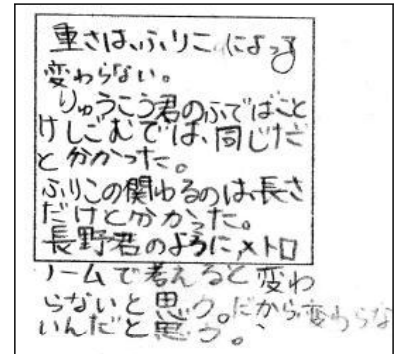 重さは、ふりこによって
変わらない。
りゅうこう君のふでばこと
けしごむでは、同じだ
と分かった。
ふりこの関わるのは、長さ
だけと分かった。
長野君のように、メトロ
ノームで考えると変わ
らないと思う。だから、変わらな
いんだと思う。